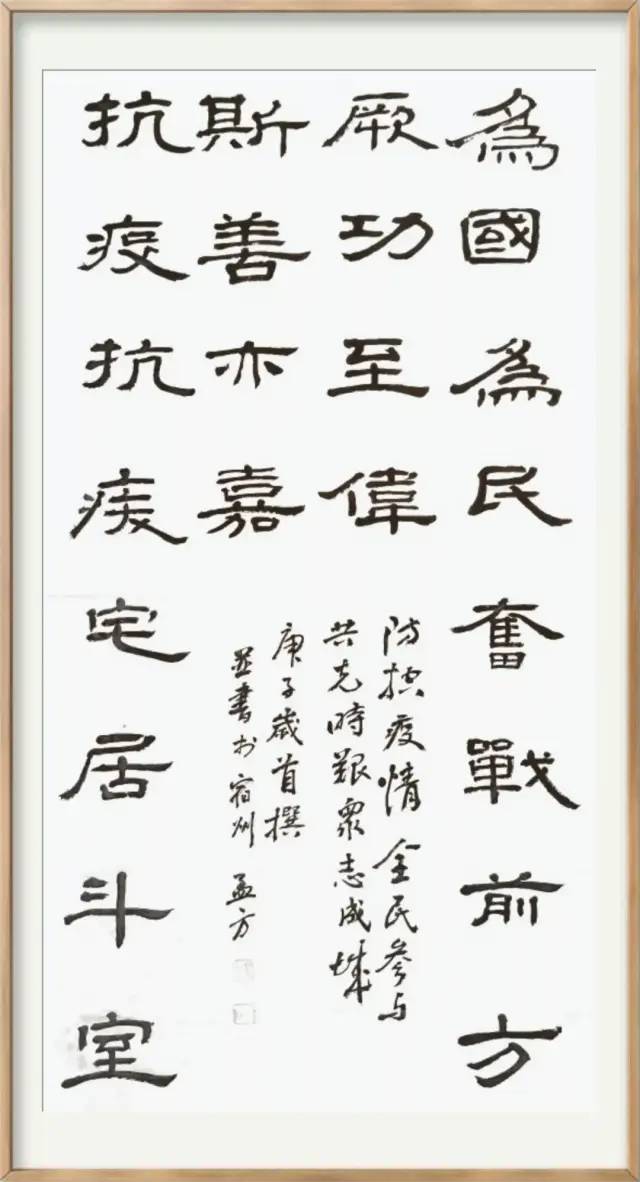 為國為民奮戰前方
厥功至偉
抗疫抗疾宅居斗室
斯善亦嘉
防控疫情全民參与
共克時艱眾志成城
庚子歲首撰
並書於宿州 孟方